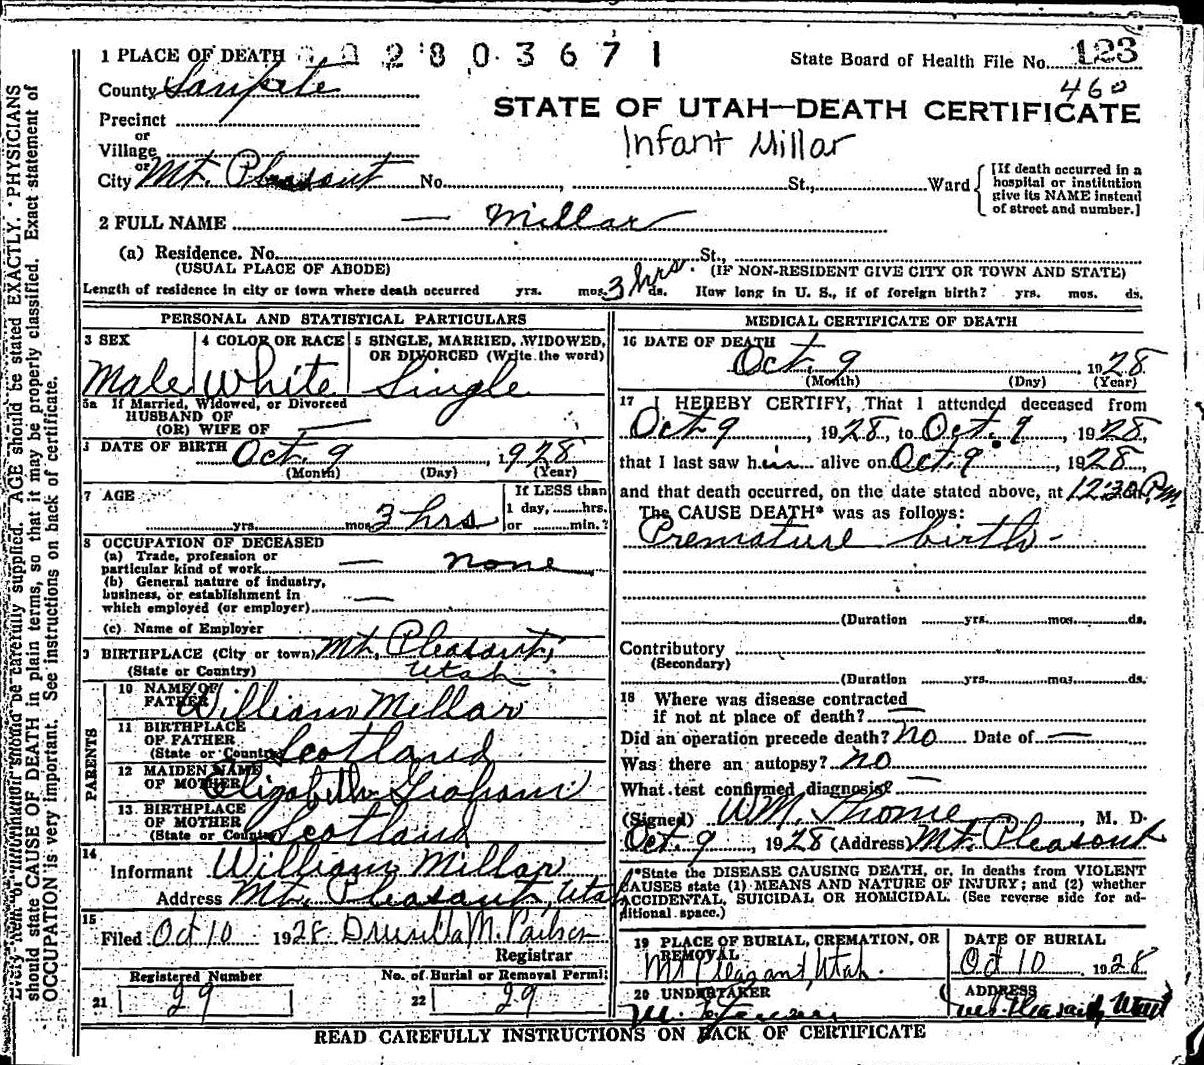 1 PLACE OF DEATH 2 8 0 3 6 7 1
State Board of Health File No. 123
460
County Sanpete
STATE OF UTAH—DEATH CERTIFICATE
Precinct
or
Village
Infant Millar
or
City Mt. Pleasant No. , St., Ward
[If death occurred in a
hospital or institution
give its NAME instead
of street and number.]
2 FULL NAME — Millar
(a) Residence. No. St.,
(USUAL PLACE OF ABODE) (IF NON-RESIDENT GIVE CITY OR TOWN AND STATE)
Length of residence in city or town where death occurred yrs. mos. 3 hrs. ds. How long in U. S., if of foreign birth? yrs. mos. ds.
PERSONAL AND STATISTICAL PARTICULARS
3 SEX 4 COLOR OR RACE 5 SINGLE, MARRIED, WIDOWED,
OR DIVORCED (Write the word)
Male White Single
5a If Married, Widowed, or Divorced
HUSBAND OF
(OR) WIFE OF —
DATE OF BIRTH Oct. 9, 1928
(Month) (Day) (Year)
7 AGE If LESS than
1 day, hrs.
yrs. mos. 3 hrs or min.?
8 OCCUPATION OF DECEASED
(a) Trade, profession or
particular kind of work — none
(b) General nature of industry,
business, or establishment in
which employed (or employer) —
(c) Name of Employer
9 BIRTHPLACE (City or town) Mt. Pleasant,
(State or Country) Utah
PARENTS
10 NAME OF
FATHER William Millar
11 BIRTHPLACE
OF FATHER
(State or Country) Scotland
12 MAIDEN NAME
OF MOTHER Elizabeth Graham
13 BIRTHPLACE
OF MOTHER
(State or Country) Scotland
14
Informant William Millar
Address Mt. Pleasant, Utah
15
Filed Oct 10 1928 M.
Registrar
Registered Number No. of Burial or Removal Permit
21 29 22 29
MEDICAL CERTIFICATE OF DEATH
16 DATE OF DEATH
Oct. 9, 1928
(Month) (Day) (Year)
17 I HEREBY CERTIFY, That I attended deceased from
Oct 9, 1928, to Oct. 9, 1928,
that I last saw him alive on Oct. 9, 1928,
and that death occurred, on the date stated above, at 12:30 P.m
The CAUSE DEATH* was as follows:
Premature birth -
(Duration yrs. mos. ds.
Contributory
(Secondary)
(Duration yrs. mos. ds.
18 Where was disease contracted
if not at place of death? —
Did an operation precede death? no Date of —
Was there an autopsy? no
What test confirmed diagnosis? —
(Signed) WM. , M. D.
Oct. 9, 1928 (Address) Mt. Pleasant
*State the DISEASE CAUSING DEATH, or, in deaths from VIOLENT
CAUSES state (1) MEANS AND NATURE OF INJURY; and (2) whether
ACCIDENTAL, SUICIDAL OR HOMICIDAL. (See reverse side for ad-
ditional space.)
19 PLACE OF BURIAL, CREMATION, OR
REMOVAL
Mt Pleasant, Utah.
DATE OF BURIAL
Oct 10 1928
20 UNDERTAKER
ADDRESS
Mt. Pleasant, Utah
READ CAREFULLY INSTRUCTIONS ON BACK OF CERTIFICATE
should be carefully supplied. AGE should be stated EXACTLY. PHYSICIANS
should state CAUSE OF DEATH in plain terms, so that it may be properly classified. Exact statement of
OCCUPATION is very important. See instructions on back of certificate.